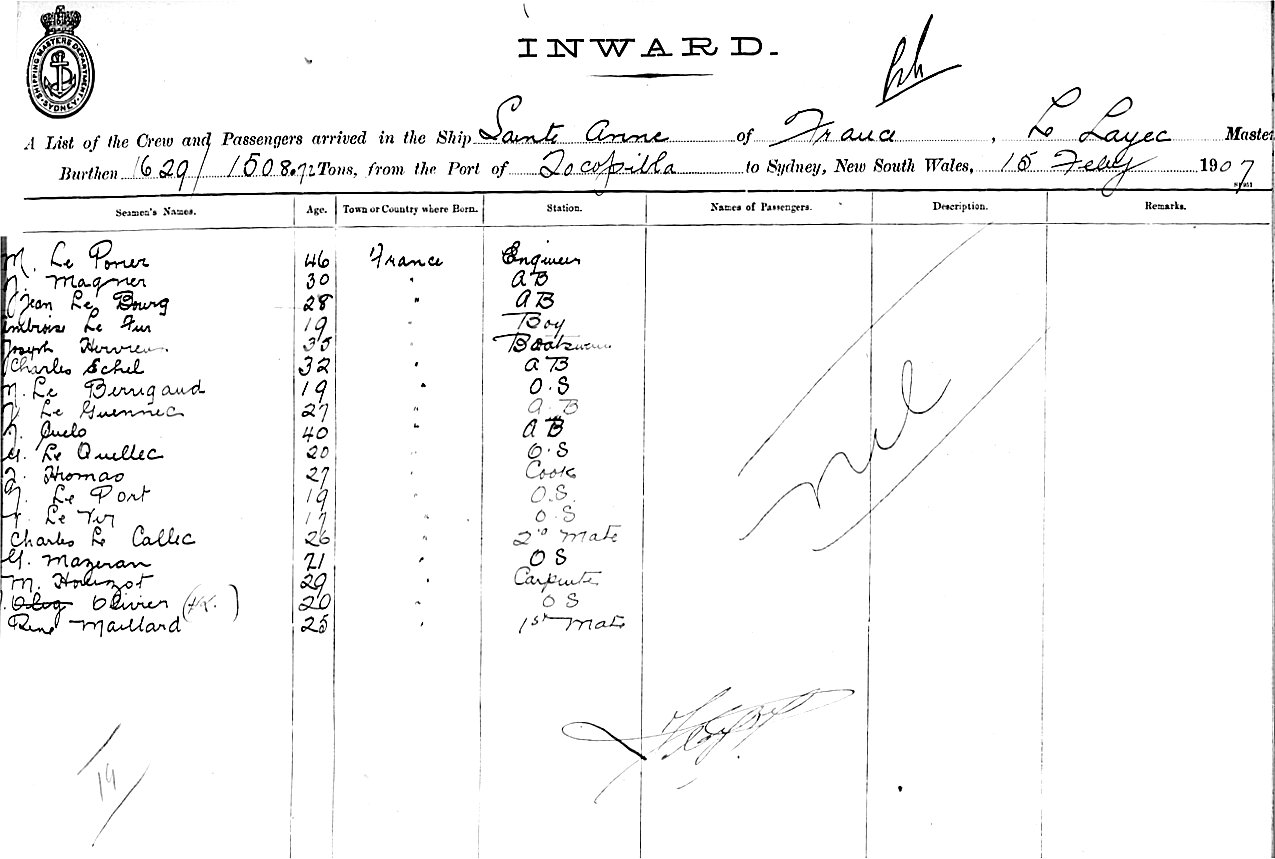 SHIPPING MASTERS DEPARTMENT SYDNEY
INWARD.
A List of the Crew and Passengers arrived in the Ship Sainte Anne of France, Le Layec Master
Burthen 1629/1508.72 Tons, from the Port of Tocopilla to Sydney, New South Wales, 15 Feby 1907
Seamen's Names. Age. Town or Country where Born. Station. Names of Passengers. Description. Remarks.
M. Le Porier 46 France Engineer
Magner 30 " A B
Jean Le Bourg 28 " A B
Ambroise Le Fur 19 " Boy
Joseph 35 " Boatswain
Charles Echel 32 " A B
Le Berrigaud 19 " O.S
Le Guennec 27 " A B
Quelo 40 " A B
Le Quellec 20 " O.S
Thomas 27 " Cook
Le Port 19 " O.S.
Le 17 " O.S
Charles Le Callec 26 " 2nd Mate
G. Mazeran 21 " O S
M. Houizot 29 " Carpenter
Olivier 20 " O S
René Maillard 25 " 1st Mate
nil
19